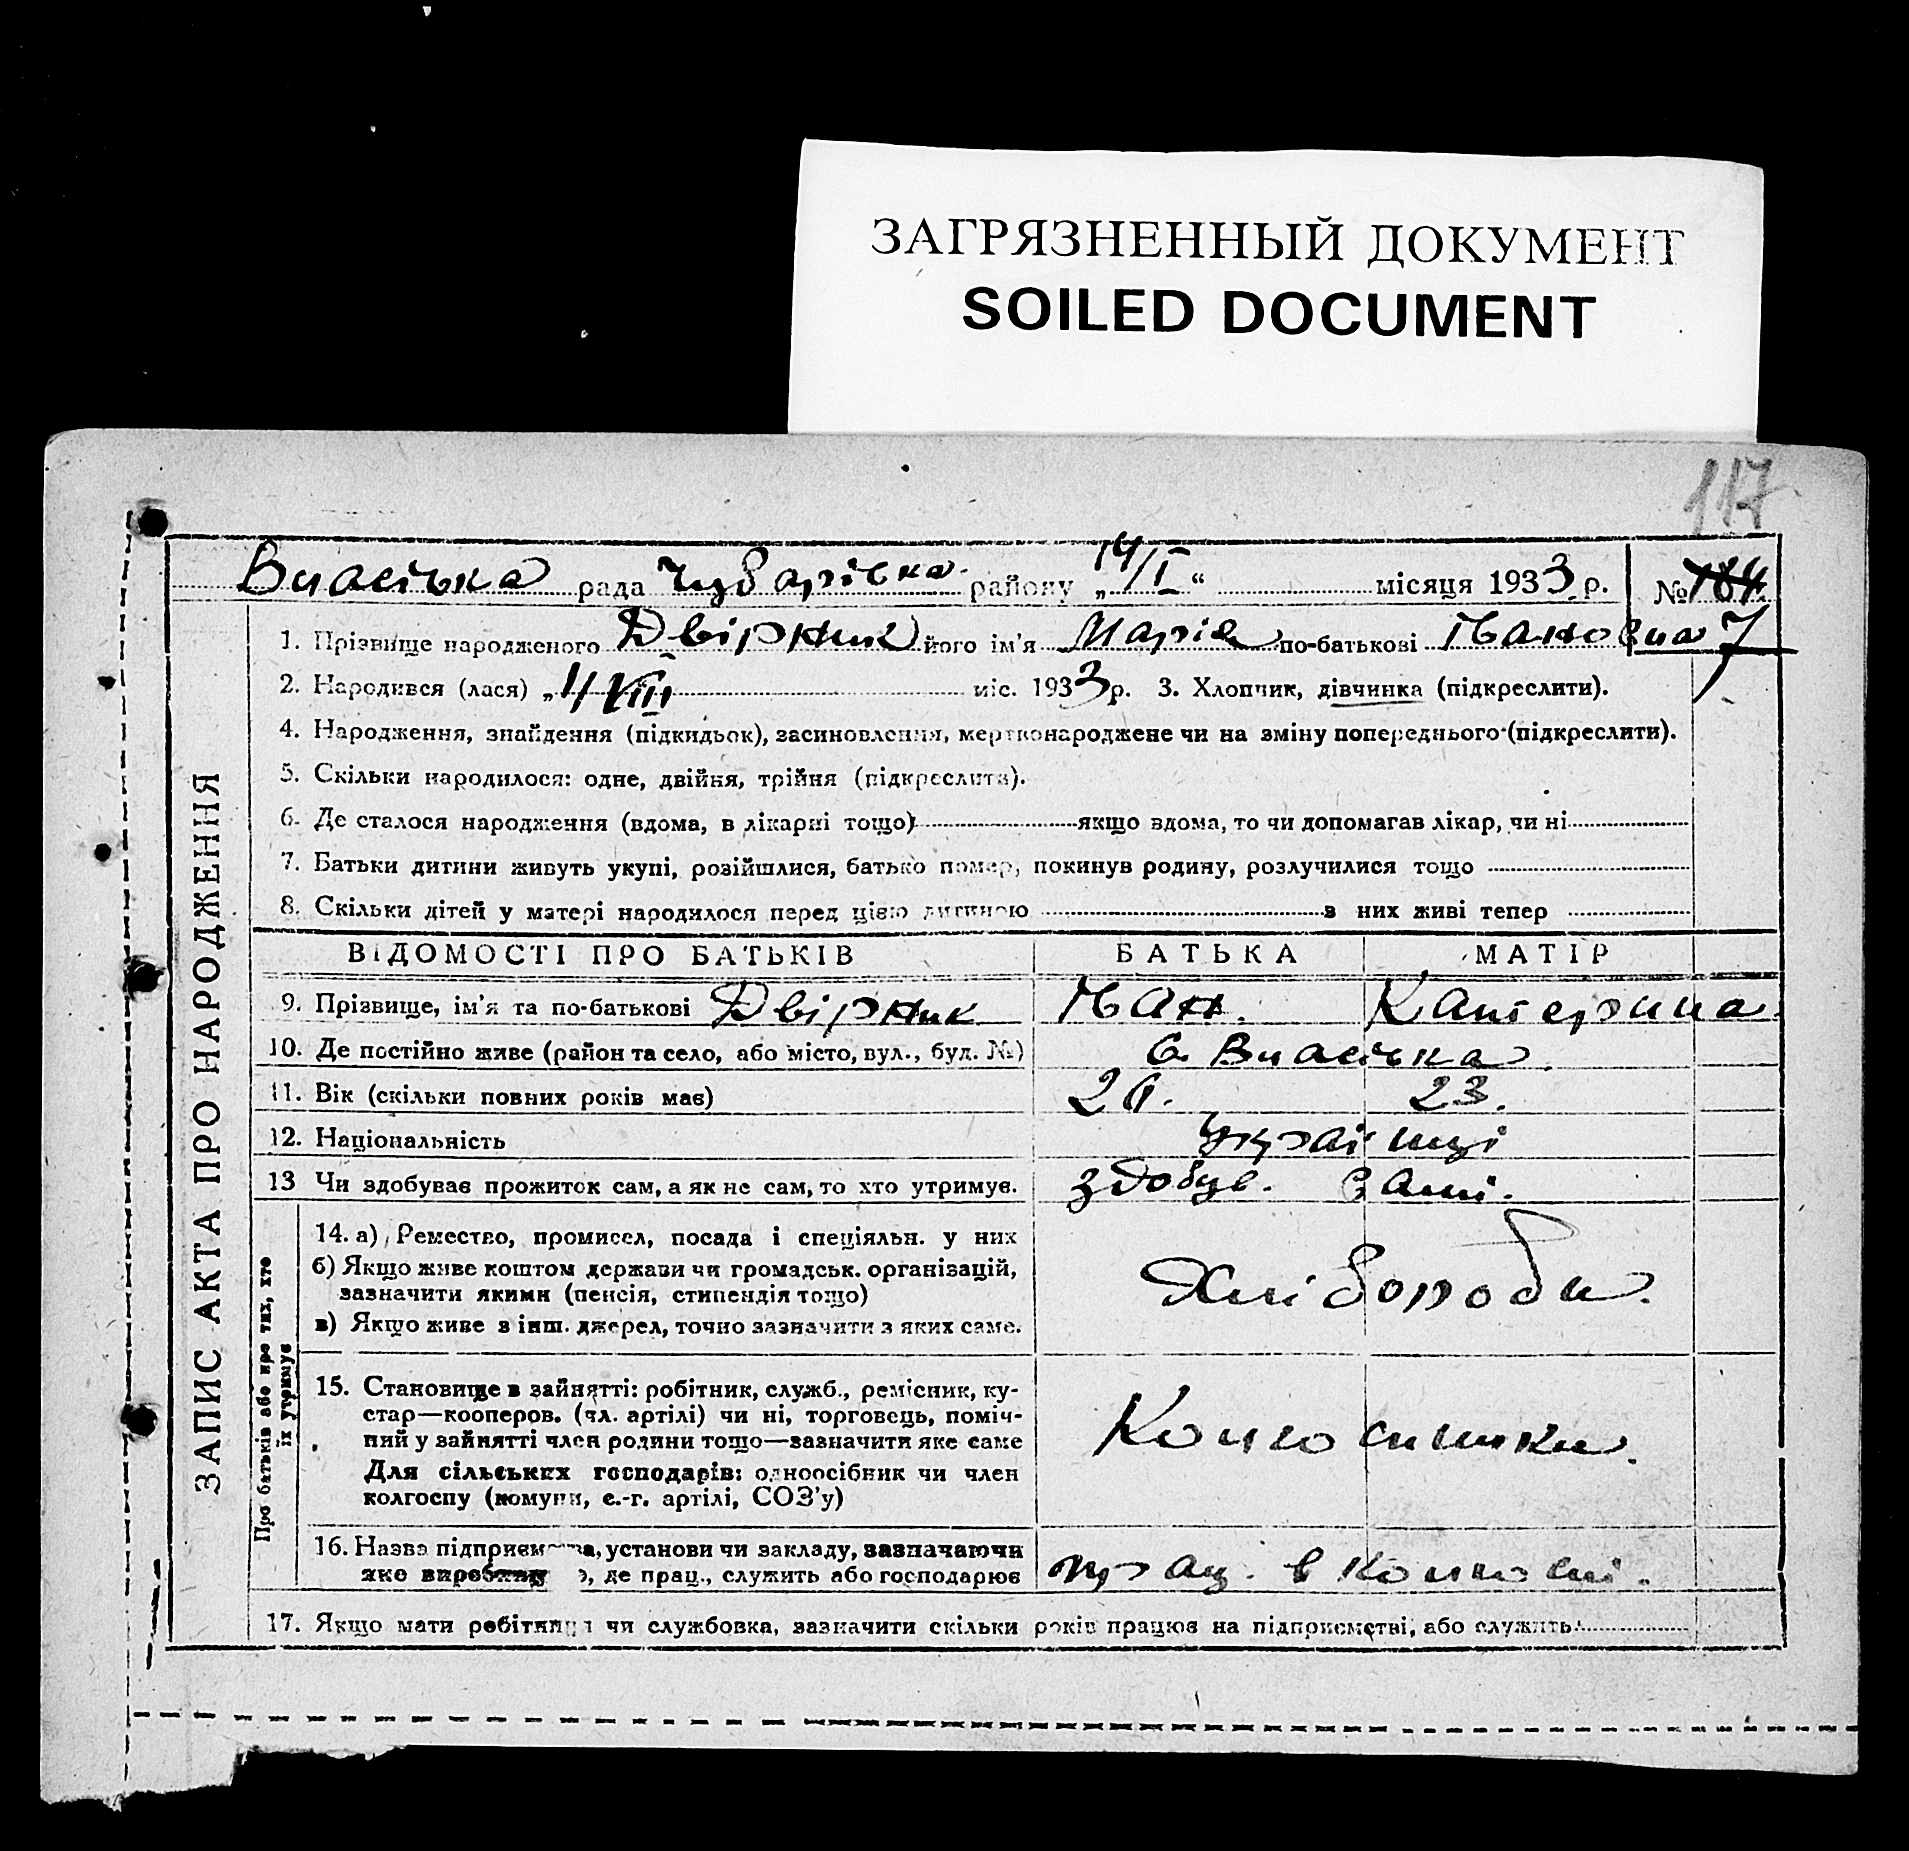 ЗАГРЯЗНЕННЫЙ ДОКУМЕНТ
SOILED DOCUMENT
117
Власівка рада Чубарівка району „14/I“ місяця 1933 р. № 184
7
1. Прізвище народженого Двірник його ім'я Марія по-батькові Івановна
2. Народився (лася) „4 VIII міс. 1933 р. 3. Хлопчик, дівчинка (підкреслити).
4. Народження, знайдення (підкидьок), засиновлення, мертвонароджене чи на зміну попереднього (підкреслити).
5. Скільки народилося: одне, двійня, трійня (підкреслити).
6. Де сталося народження (вдома, в лікарні тощо) якщо вдома, то чи допомагав лікар, чи ні
7. Батьки дитини живуть укупі, розійшлися, батько помер, покинув родину, розлучилися тощо
8. Скільки дітей у матері народилося перед цією дитиною з них живі тепер
ВІДОМОСТІ ПРО БАТЬКІВ БАТЬКА МАТІР
9. Прізвище, ім'я та по-батькові Двірник Іван. Катерина
10. Де постійно живе (район та село, або місто, вул., буд. №) с. Власівка
11. Вік (скільки повних років має) 23.
12. Національність Українці
13 Чи здобуває прожиток сам, а як не сам, то хто утримує. здобув. самі.
14. а) Ремество, промисел, посада і спеціяльн. у них
б) Якщо живе коштом держави чи громадськ. організацій,
зазначити якими (пенсія, стипендія тощо)
в) Якщо живе з інш. джерел, точно зазначити з яких саме.
Хлібороби.
15. Становище в зайнятті: робітник, служб., ремісник, ку-
стар—кооперов. (чл. артілі) чи ні, торговець, поміч-
ний у зайнятті член родини тощо—зазначити яке саме
Для сільських господарів: одноосібник чи член
колгоспу (комуни, с.-г. артілі, СОЗ'у)
Колгоспники.
16. Назва підприємства, установи чи закладу, зазначаючи
яке виробниц , де прац., служить або господарює
прац. в колгоспі.
17. Якщо мати робітниця чи службовка, зазначити скільки років працює на підприємстві, або служить
ЗАПИС АКТА ПРО НАРОДЖЕННЯ
Про батьків або про тих, хто
їх утримує